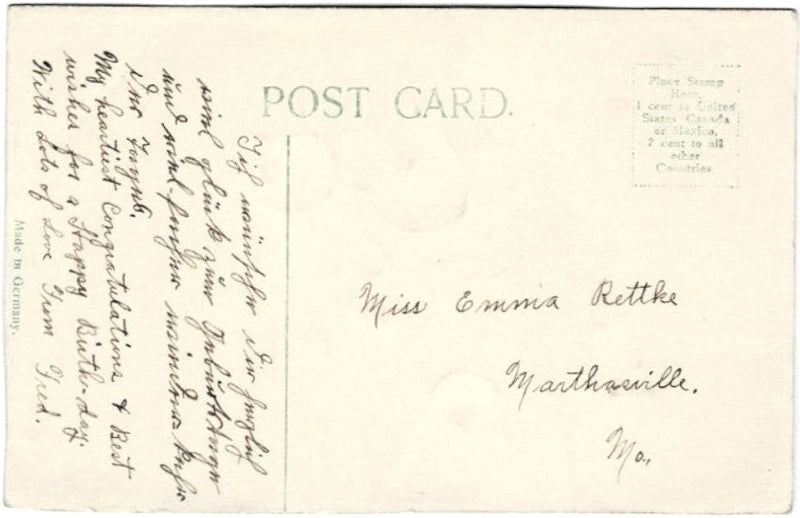 POST CARD.
Place Stamp
Here,
1 cent to United
States Canada
or Mexico,
2 cent to all
other
Countries.
Ich wünsche dir herzlich
viel glück zum Geburtstage
und viel
des
My heartiest Congratulations & Best
wishes for a Happy Birth-day.
With Lots of Love From Fred.
Made in Germany.
Miss Emma Rettke
Marthasville.
Mo.,